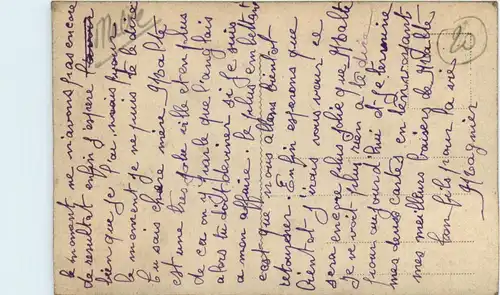 le moment ne n'avons pas encore
de resultat enfin j'espere
bien que je j'ai mais pour
le moment je ne puis te le dire
Tu sais chere mère Malte
est une tres jolie ville et en plus
de ca on y parle que l'anglais
alors tu doit deviner si je suis
a mon affaire. le plus embettant
c'est que nous allons bientot
retourner. Enfin esperons que
bientot j'irais vous voir ce
sera encore plus jolie que Malte
Je ne voit plus rien a te dire
pour aujourd'hui et je termine
mes deux cartes en t'envoyant
mes meilleurs baisers de Malte
ton fils pour la vie
Magnier
Malte
20